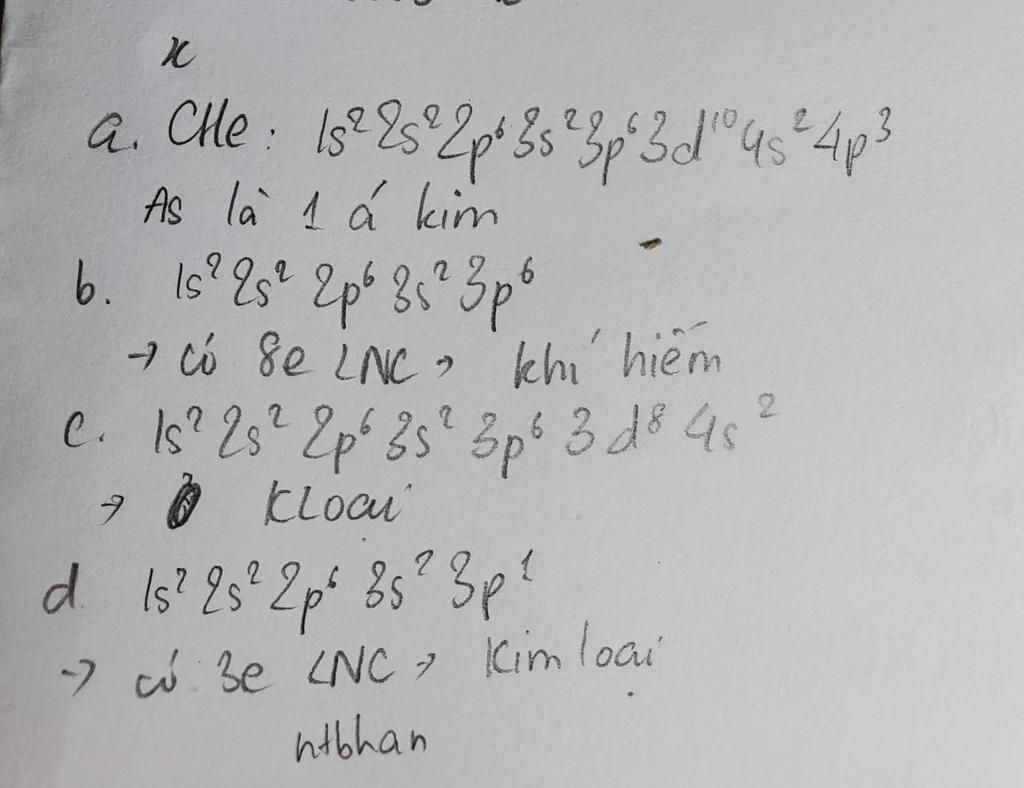 x
a. CHe: 1s² 2s² 2p⁶ 3s² 3p⁶ 3d¹⁰ 4s² 4p³
As là 1 á kim
b. 1s² 2s² 2p⁶ 3s² 3p⁶
→ có 8e LNC → khí hiếm
c. 1s² 2s² 2p⁶ 3s² 3p⁶ 3d⁸ 4s²
→ KLoại
d. 1s² 2s² 2p⁶ 3s² 3p¹
→ có 3e LNC → Kim loại
ntbhan